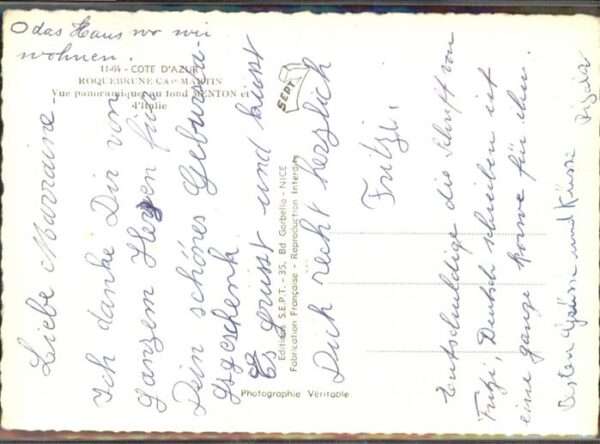 O das Haus wo wir
wohnen.
11-64 - COTE D'AZUR
ROQUEBRUNE CAP MARTIN
Vue panoramique au fond MENTON et
d'Italie
SEPT
Liebe Marraine -
Ich danke Dir von
ganzem Herzen für
Dein schönes Geburts-
gsgeschenk
Es grüsst und küsst
Dich recht herzlich
Fritzi,
Editions S.E.P.T. - 35, Bd Gorbella - NICE
Fabrication Française - Reproduction Interdite
Photographie Véritable
Entschuldige die Schrift von
Fritzi, Deutsch schreiben ist
eine ganze für ihn.
Besten Grüsse und Küsse